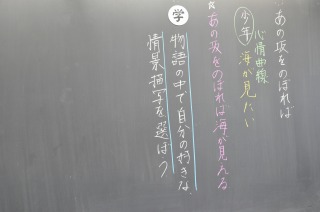 あの坂をのぼれば
心情曲線
少年 海が見たい
☆あの坂をのぼれば海が見える
学 物語の中で自分の好きな
情景描写を選ぼう